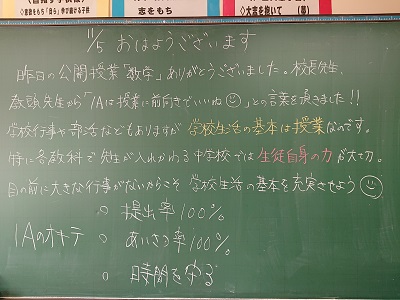 志をもち
11/5 おはようございます
昨日の公開授業「数学」ありがとうございました。校長先生、
教頭先生から「1Aは授業に前向きでいいね」との言葉を頂きました!!
学校行事や部活などもありますが学校生活の基本は授業なのです。
特に各教科で先生が入れかわる中学校では生徒自身の力が大切。
目の前に大きな行事がないからこそ学校生活の基本を充実させよう
1Aのオキテ
○ 提出率100%
○ あいさつ率100%
○ 時間を守る